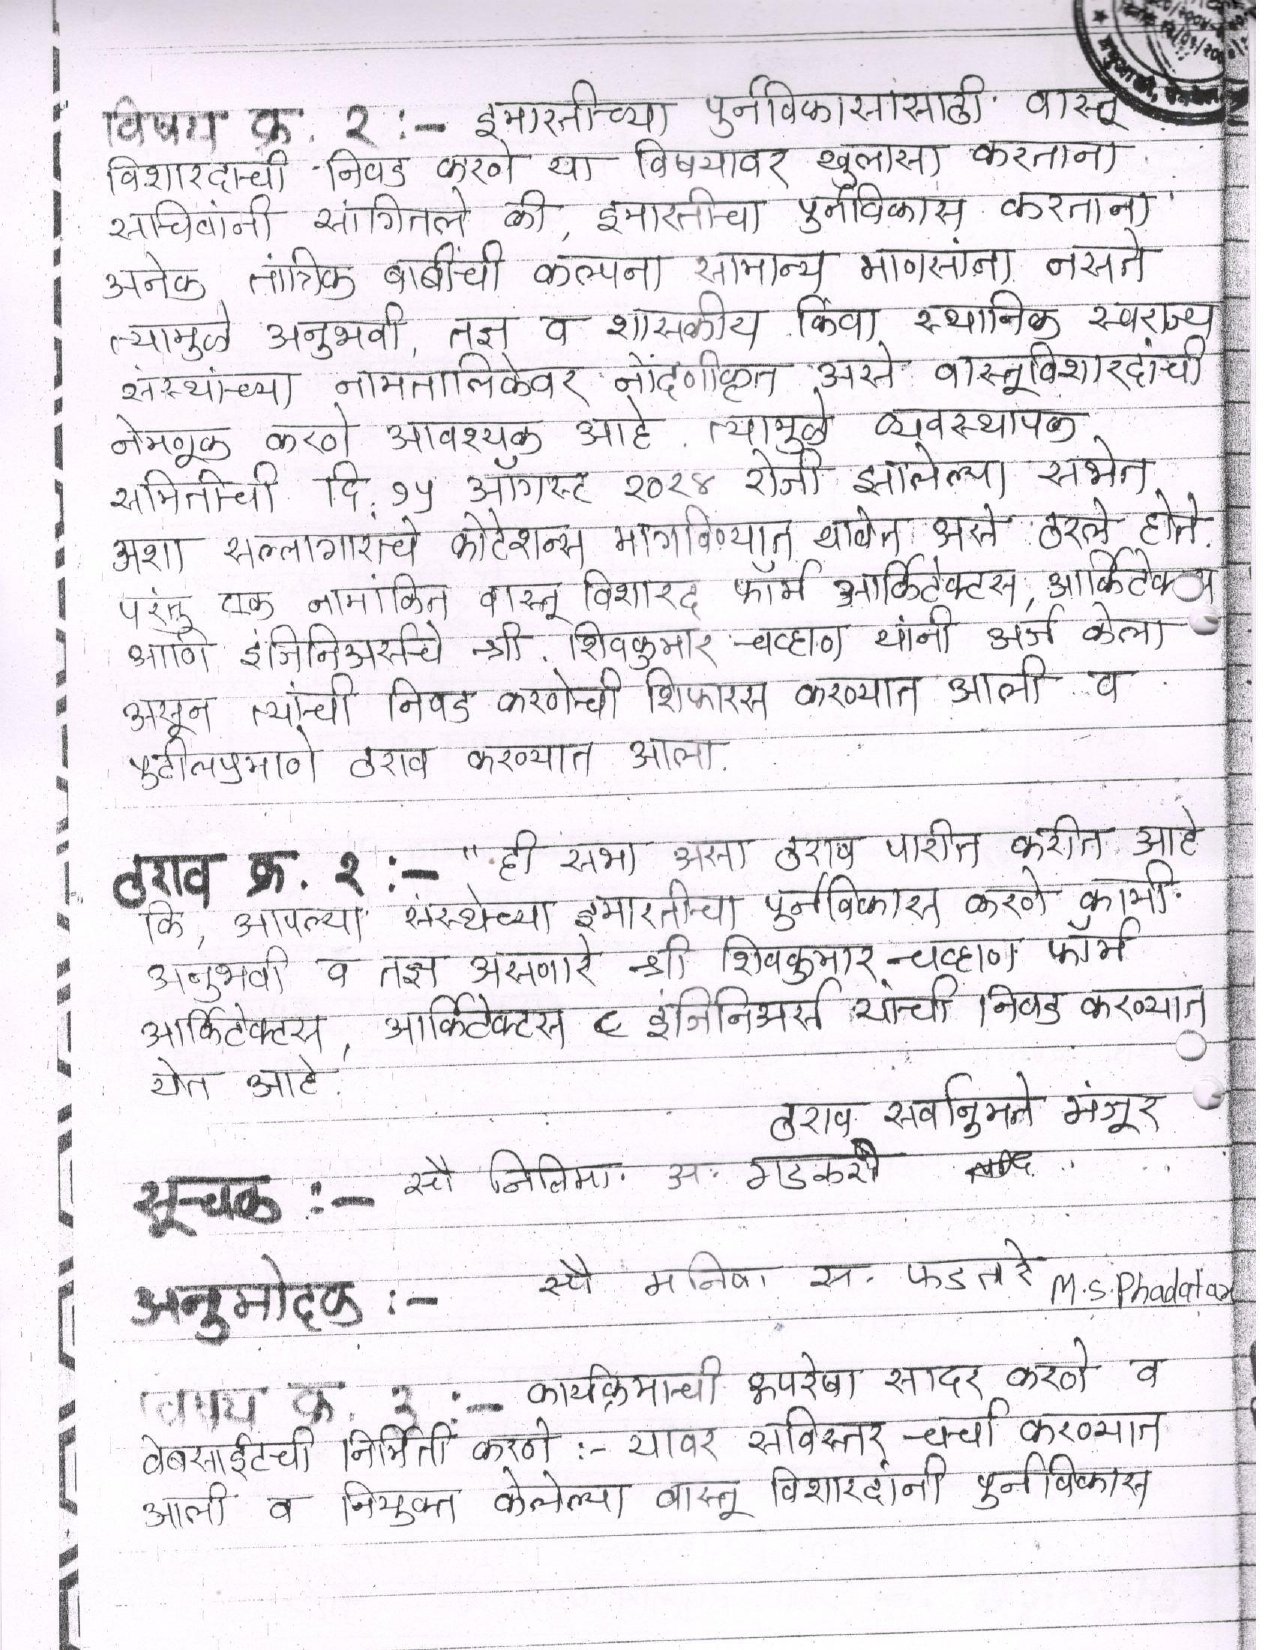 विषय क्र. २ :- इमारतीच्या पुर्नविकासांसाठी वास्तू
विशारदाची निवड करणे या विषयावर खुलासा करताना
सचिवांनी सांगितले की, इमारतीचा पुर्नविकास करताना
अनेक तांत्रिक बाबींची कल्पना सामान्य माणसांना नसते
त्यामुळे अनुभवी, तज्ञ व शासकीय किंवा स्थानिक स्वराज्य
संस्थांच्या नामतालिकेवर नोंदणीकृत असे वास्तूविशारदांची
नेमणूक करणे आवश्यक आहे. त्यामुळे व्यवस्थापक
समितीची दि. १५ ऑगस्ट २०२४ रोजी झालेल्या सभेत
अशा सल्लागारांचे कोटेशन्स मागविण्यात यावेत असे ठरले होते.
परंतु एक नामांकित वास्तू विशारद फॉर्म आर्किटेक्टस, आर्किटेक्टस
आणि इंजिनिअर्सचे श्री. शिवकुमार चव्हाण यांनी अर्ज केला
असून त्यांची निवड करणेची शिफारस करण्यात आली व
पुढीलप्रमाणे ठराव करण्यात आला.
ठराव क्र. २ :- " ही सभा असा ठराव पारीत करीत आहे
कि, आपल्या संस्थेच्या इमारतीचा पुर्नविकास करणे कामी
अनुभवी व तज्ञ असणारे श्री शिवकुमार चव्हाण फॉर्म
आर्किटेक्टस, आर्किटेक्टस & इंजिनिअर्स यांची निवड करण्यात
येत आहे.
ठराव सर्वानुमते मंजूर
सूचक :- सौ निलिमा अ. गडकरी
अनुमोदक :- सौ मनिषा स. फडतरे M.S.Phadatare
विषय क्र. ३ :- कार्यक्रमाची रूपरेषा सादर करणे व
वेबसाईटची निर्मिती करणे :- यावर सविस्तर चर्चा करण्यात
आली व नियुक्त केलेल्या वास्तू विशारदांनी पुर्नविकास